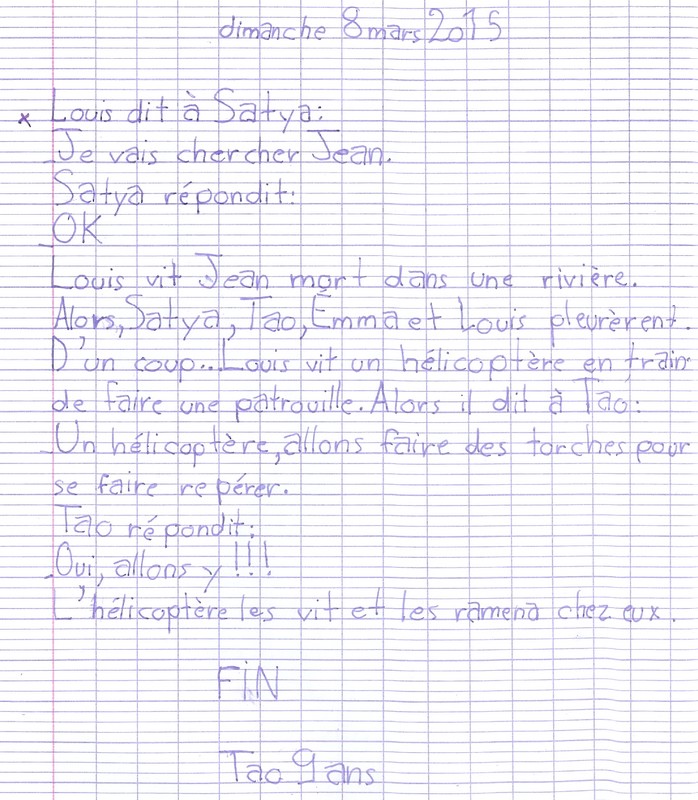 dimanche 8 mars 2015
x Louis dit à Satya:
_Je vais chercher Jean.
Satya répondit:
_OK
Louis vit Jean mort dans une rivière.
Alors, Satya, Tao, Emma et Louis pleurèrent.
D'un coup... Louis vit un hélicoptère en train
de faire une patrouille. Alors il dit à Tao:
_Un hélicoptère, allons faire des torches pour
se faire repérer.
Tao répondit:
_Oui, allons y !!!
L'hélicoptère les vit et les ramena chez eux.
FiN
Tao 9 ans